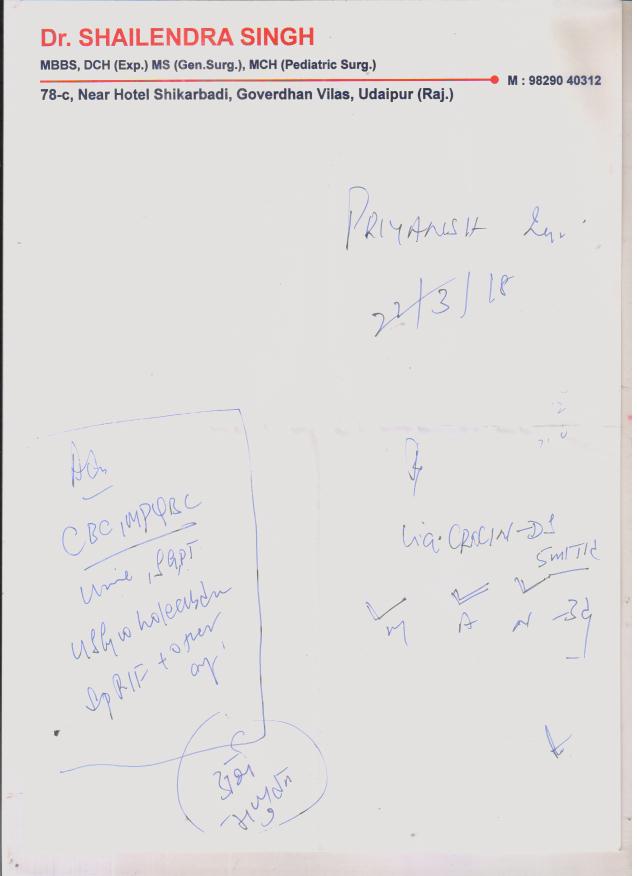 Dr. SHAILENDRA SINGH
MBBS, DCH (Exp.) MS (Gen.Surg.), MCH (Pediatric Surg.)
M : 98290 40312
78-c, Near Hotel Shikarbadi, Goverdhan Vilas, Udaipur (Raj.)
PRIYANSH
22/3/18
Adv
CBC, MP QBC
Urine, SGPT
USG whole abdomen
Sp RIF + other
Liq. CROCIN-DS
5ml TID
M A N -3d